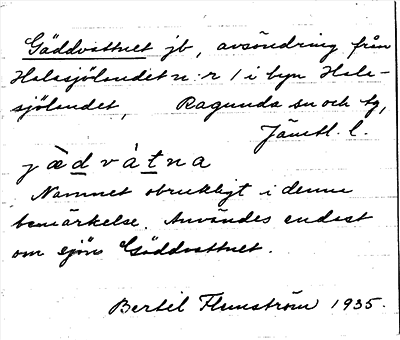 Gäddvattnet jb, avsöndring från
Halasjölandet n:r 1 i byn Hala-
sjölandet, Ragunda sn och tg,
Jämtl. l.
jæ̀dvàtna
Namnet obrukligt i denna
bemärkelse. Användes endast
om sjön Gäddvattnet.
Bertil Flemström 1935.